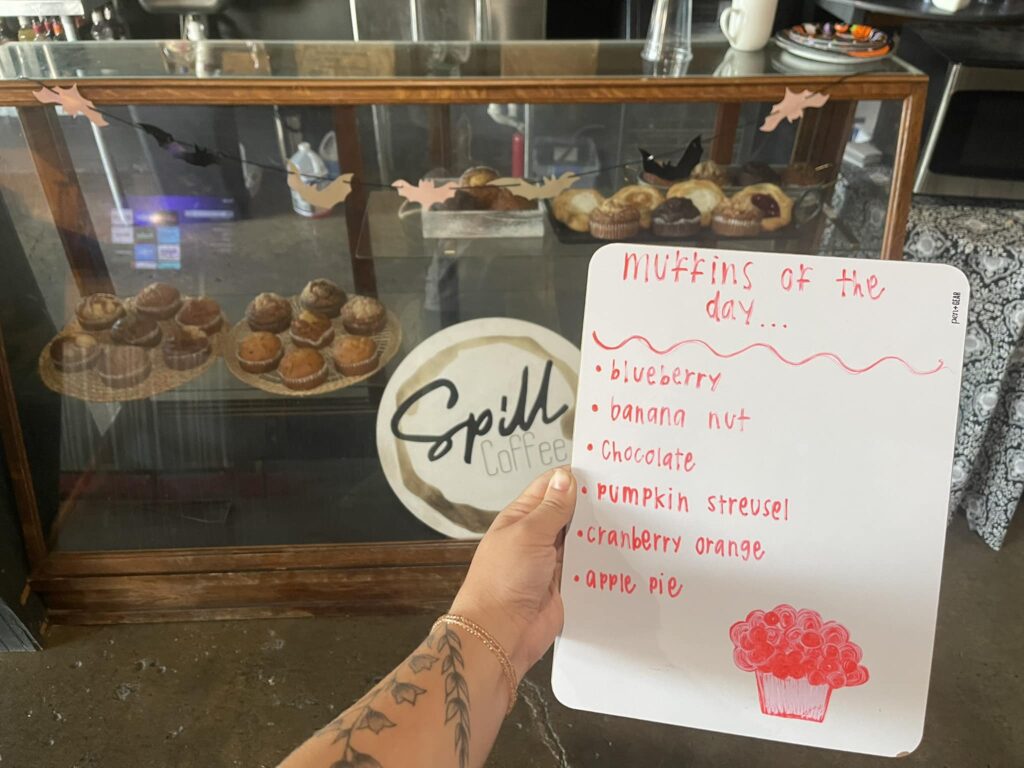 muffins of the
day...
• blueberry
• banana nut
• Chocolate
• pumpkin streusel
• cranberry orange
• apple pie
pen+GEAR
Spill
Coffee